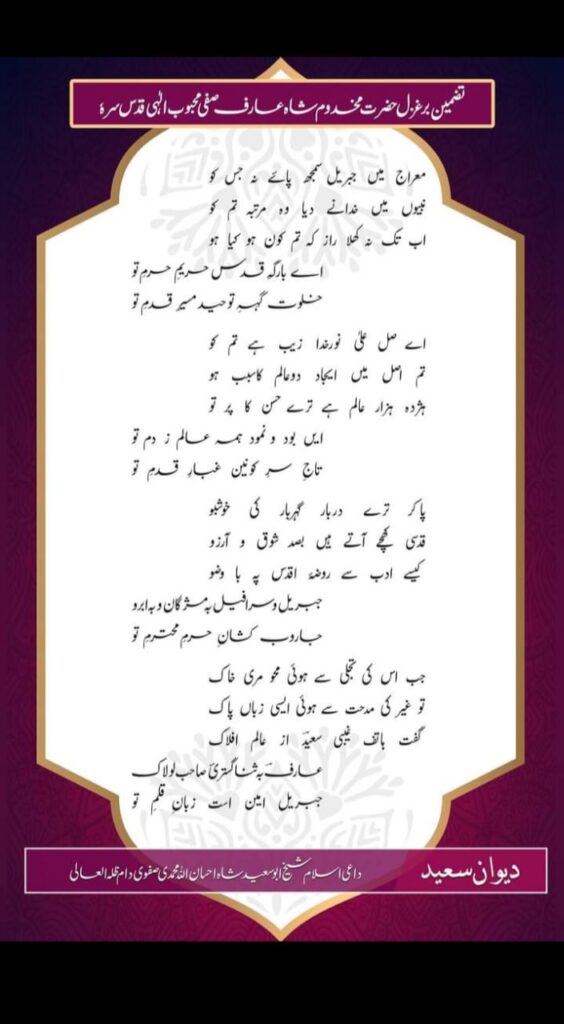 تضمین بر غزل حضرت مخدوم شاہ عارف صفی محبوب الٰہی قدس سرہٗ
معراج میں جبریل سمجھ پائے نہ جس کو
نبیوں میں خدانے دیا وہ مرتبہ تم کو
اب تک نہ کھلا راز کہ تم کون ہو کیا ہو
اے بارگہِ قدس حریمِ حرمِ تو
خلوت گہہِ توحید مسیرِ قدمِ تو
اے صل علیٰ نورخدا زیب ہے تم کو
تم اصل میں ایجاد دوعالم کاسبب ہو
ہژدہ ہزار عالم ہے ترے حسن کا پر تو
ایں بود و نمود ہمہ عالم ز دم تو
تاجِ سرِ کونین غبارِ قدمِ تو
پاکر ترے دربار گہربار کی خوشبو
قدسی کھچے آتے ہیں بصد شوق و آرزو
کیسے ادب سے روضۂ اقدس پہ با وضو
جبریل و سرافیل بہ مژگان و بہ ابرو
جاروب کشانِ حرمِ محترمِ تو
جب اس کی تجلی سے ہوئی محو مری خاک
تو غیر کی مدحت سے ہوئی ایسی زباں پاک
گفت ہاتف غیبی سعیدؔ از عالم افلاک
عارفؔ بہ ثنا گستریٔ صاحب لولاک
جبریل امین است زبانِ قلمِ تو
دیوان سعید
داعی اسلام شیخ ابوسعید شاہ احسان اللہ محمدی صفوی دام ظلہ العالی